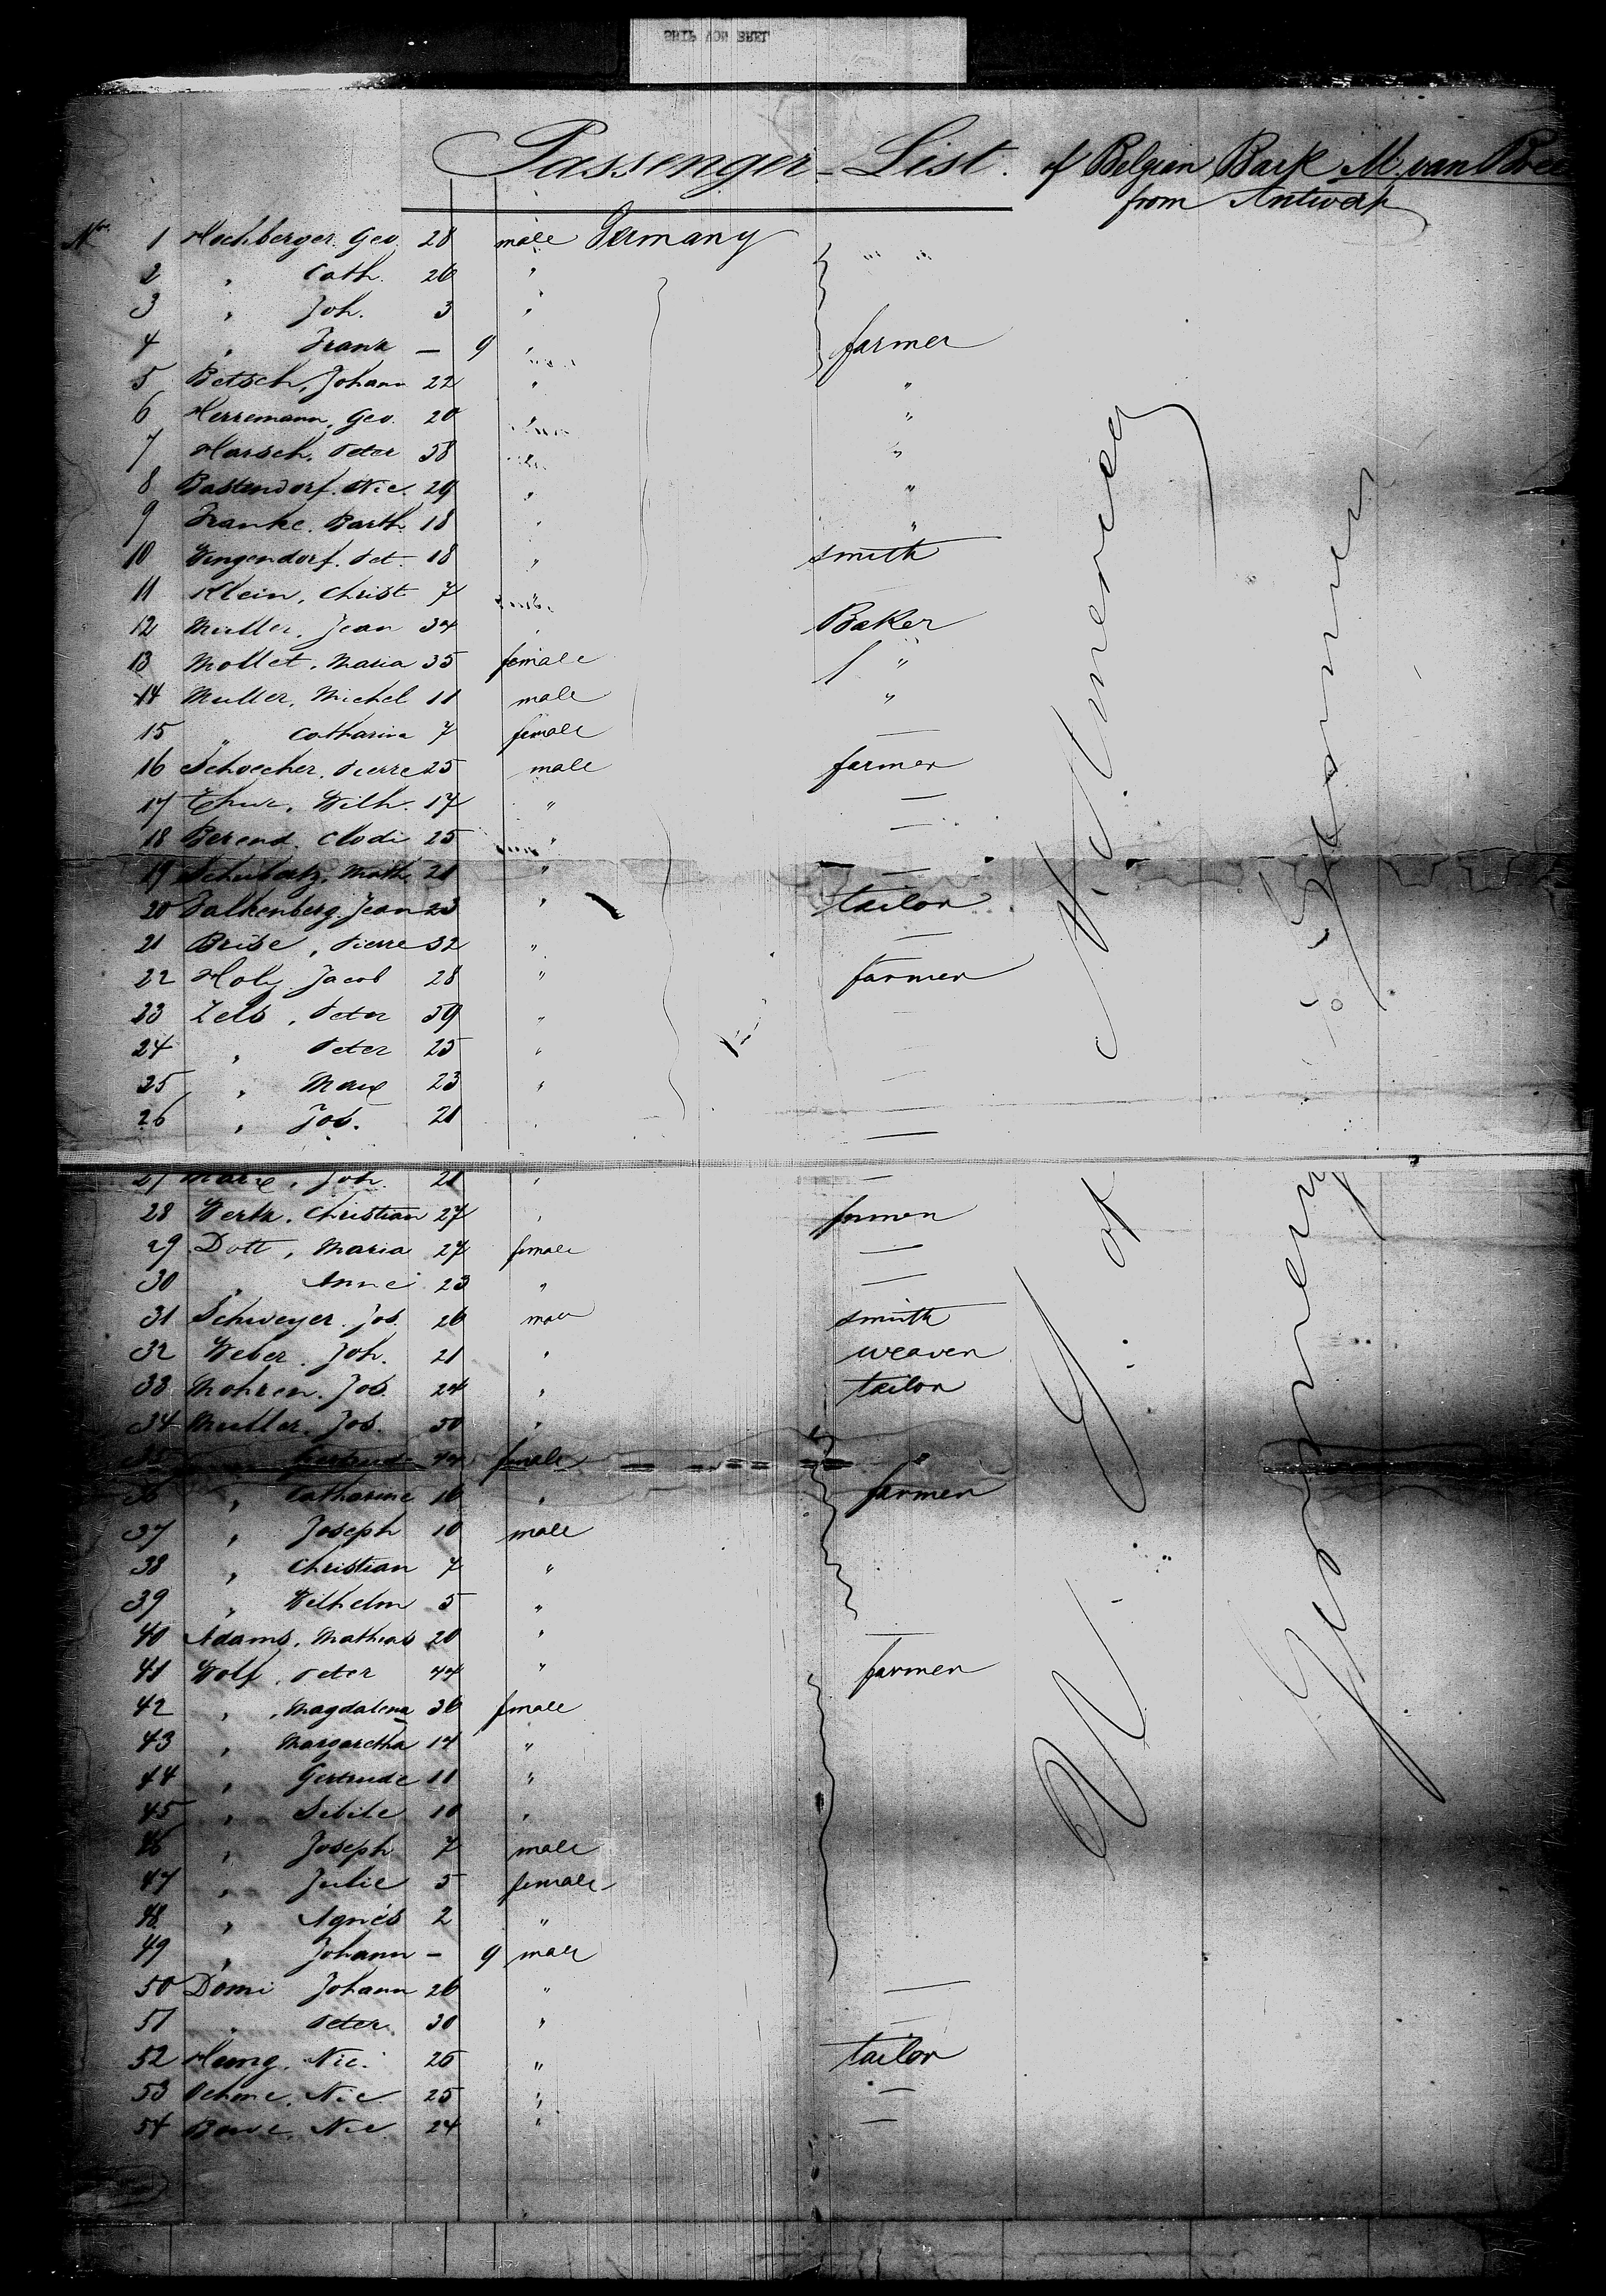 Passenger-List. of Belgian Bark M. van Bree
from Antwerp
No. 1 Hochberger Geo. 28 male Germany " "
2 " Cath. 26 "
3 " Joh. 3 "
4 " Frank — 9 " farmer
5 Betsch, Johann 22 " "
6 Herremann, Geo. 20 " "
7 Harsch, Peter 38 " "
8 Bastendorf. Nic. 29 " "
9 Franke. Barth. 18 " "
10 Wingendorf. Pet. 18 " smith
11 Klein, Christ 7 "
12 Muller, Jean 34 " Baker
13 Mollet, Maria 35 female "
14 Muller, Michel 11 male "
15 " Catharina 7 female —
16 Schoecher, Pierre 25 male farmer
17 Wilh. 17 " —
18 Berend. Clodi 25 " —
19 Math 21 " —
20 Falkenberg. Jean 23 " tailor
21 Brise, Pierre 32 " —
22 Jacob 28 " farmer
23 Zels, Peter 59 "
24 " Peter 25 " —
25 " 23 " —
26 " Jos. 21 " —
27 Marx, Joh. 21 " —
28 Christian 27 " farmer
29 Dott, Maria 27 female —
30 " Anne 23 " —
31 Schweyer. Jos. 26 male smith
32 Weber. Joh. 21 " weaver
33 Mohren. Jos. 24 " tailor
34 Muller. Jos. 50 "
35 " Gertrude 44 female "
36 " Catharine 16 " farmer
37 " Joseph 10 male
38 " Christian 7 "
39 " Wilhelm 5 "
40 Adams, Mathias 20 " —
41 Wolf, Peter 44 " farmer
42 " Magdalena 36 female
43 " Margaretha 14 "
44 " Gertrude 11 "
45 " Sibile 10 "
46 " Joseph 7 male
47 " Julie 5 female
48 " Agnès 2 "
49 " Johann — 9 male
50 Domi Johann 26 " —
51 " Peter 30 " —
52 Nic. 26 " tailor
53 Nic. 25 " —
54 Nic. 24 " —
U. S. of N. America
Germany